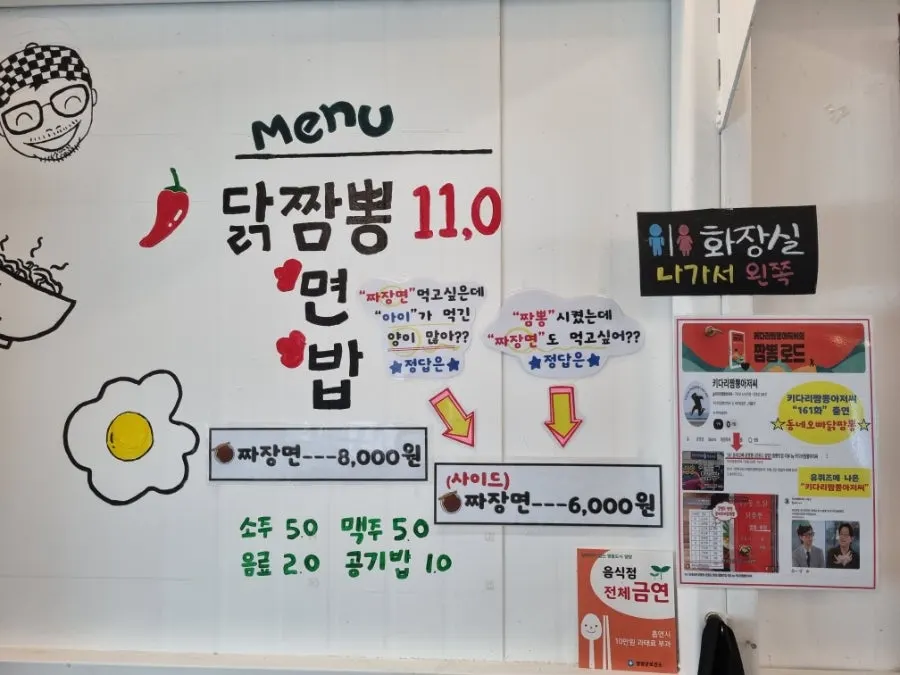 Menu
닭짬뽕 11,0
면
밥
"짜장면" 먹고싶은데
"아이"가 먹긴
양이 많아??
★정답은★
"짬뽕" 시켰는데
"짜장면"도 먹고싶어??
★정답은★
짜장면---8,000원
(사이드)
짜장면---6,000원
소주 5.0 맥주 5.0
음료 2.0 공기밥 1.0
화장실
나가서 왼쪽
키다리짬뽕아저씨의
짬뽕로드
키다리짬뽕아저씨
키다리짬뽕아저씨
"161화" 출연
☆동네오빠닭짬뽕☆
유퀴즈에 나온
"키다리짬뽕아저씨"
음식점
전체금연
흡연시
10만원 과태료 부과